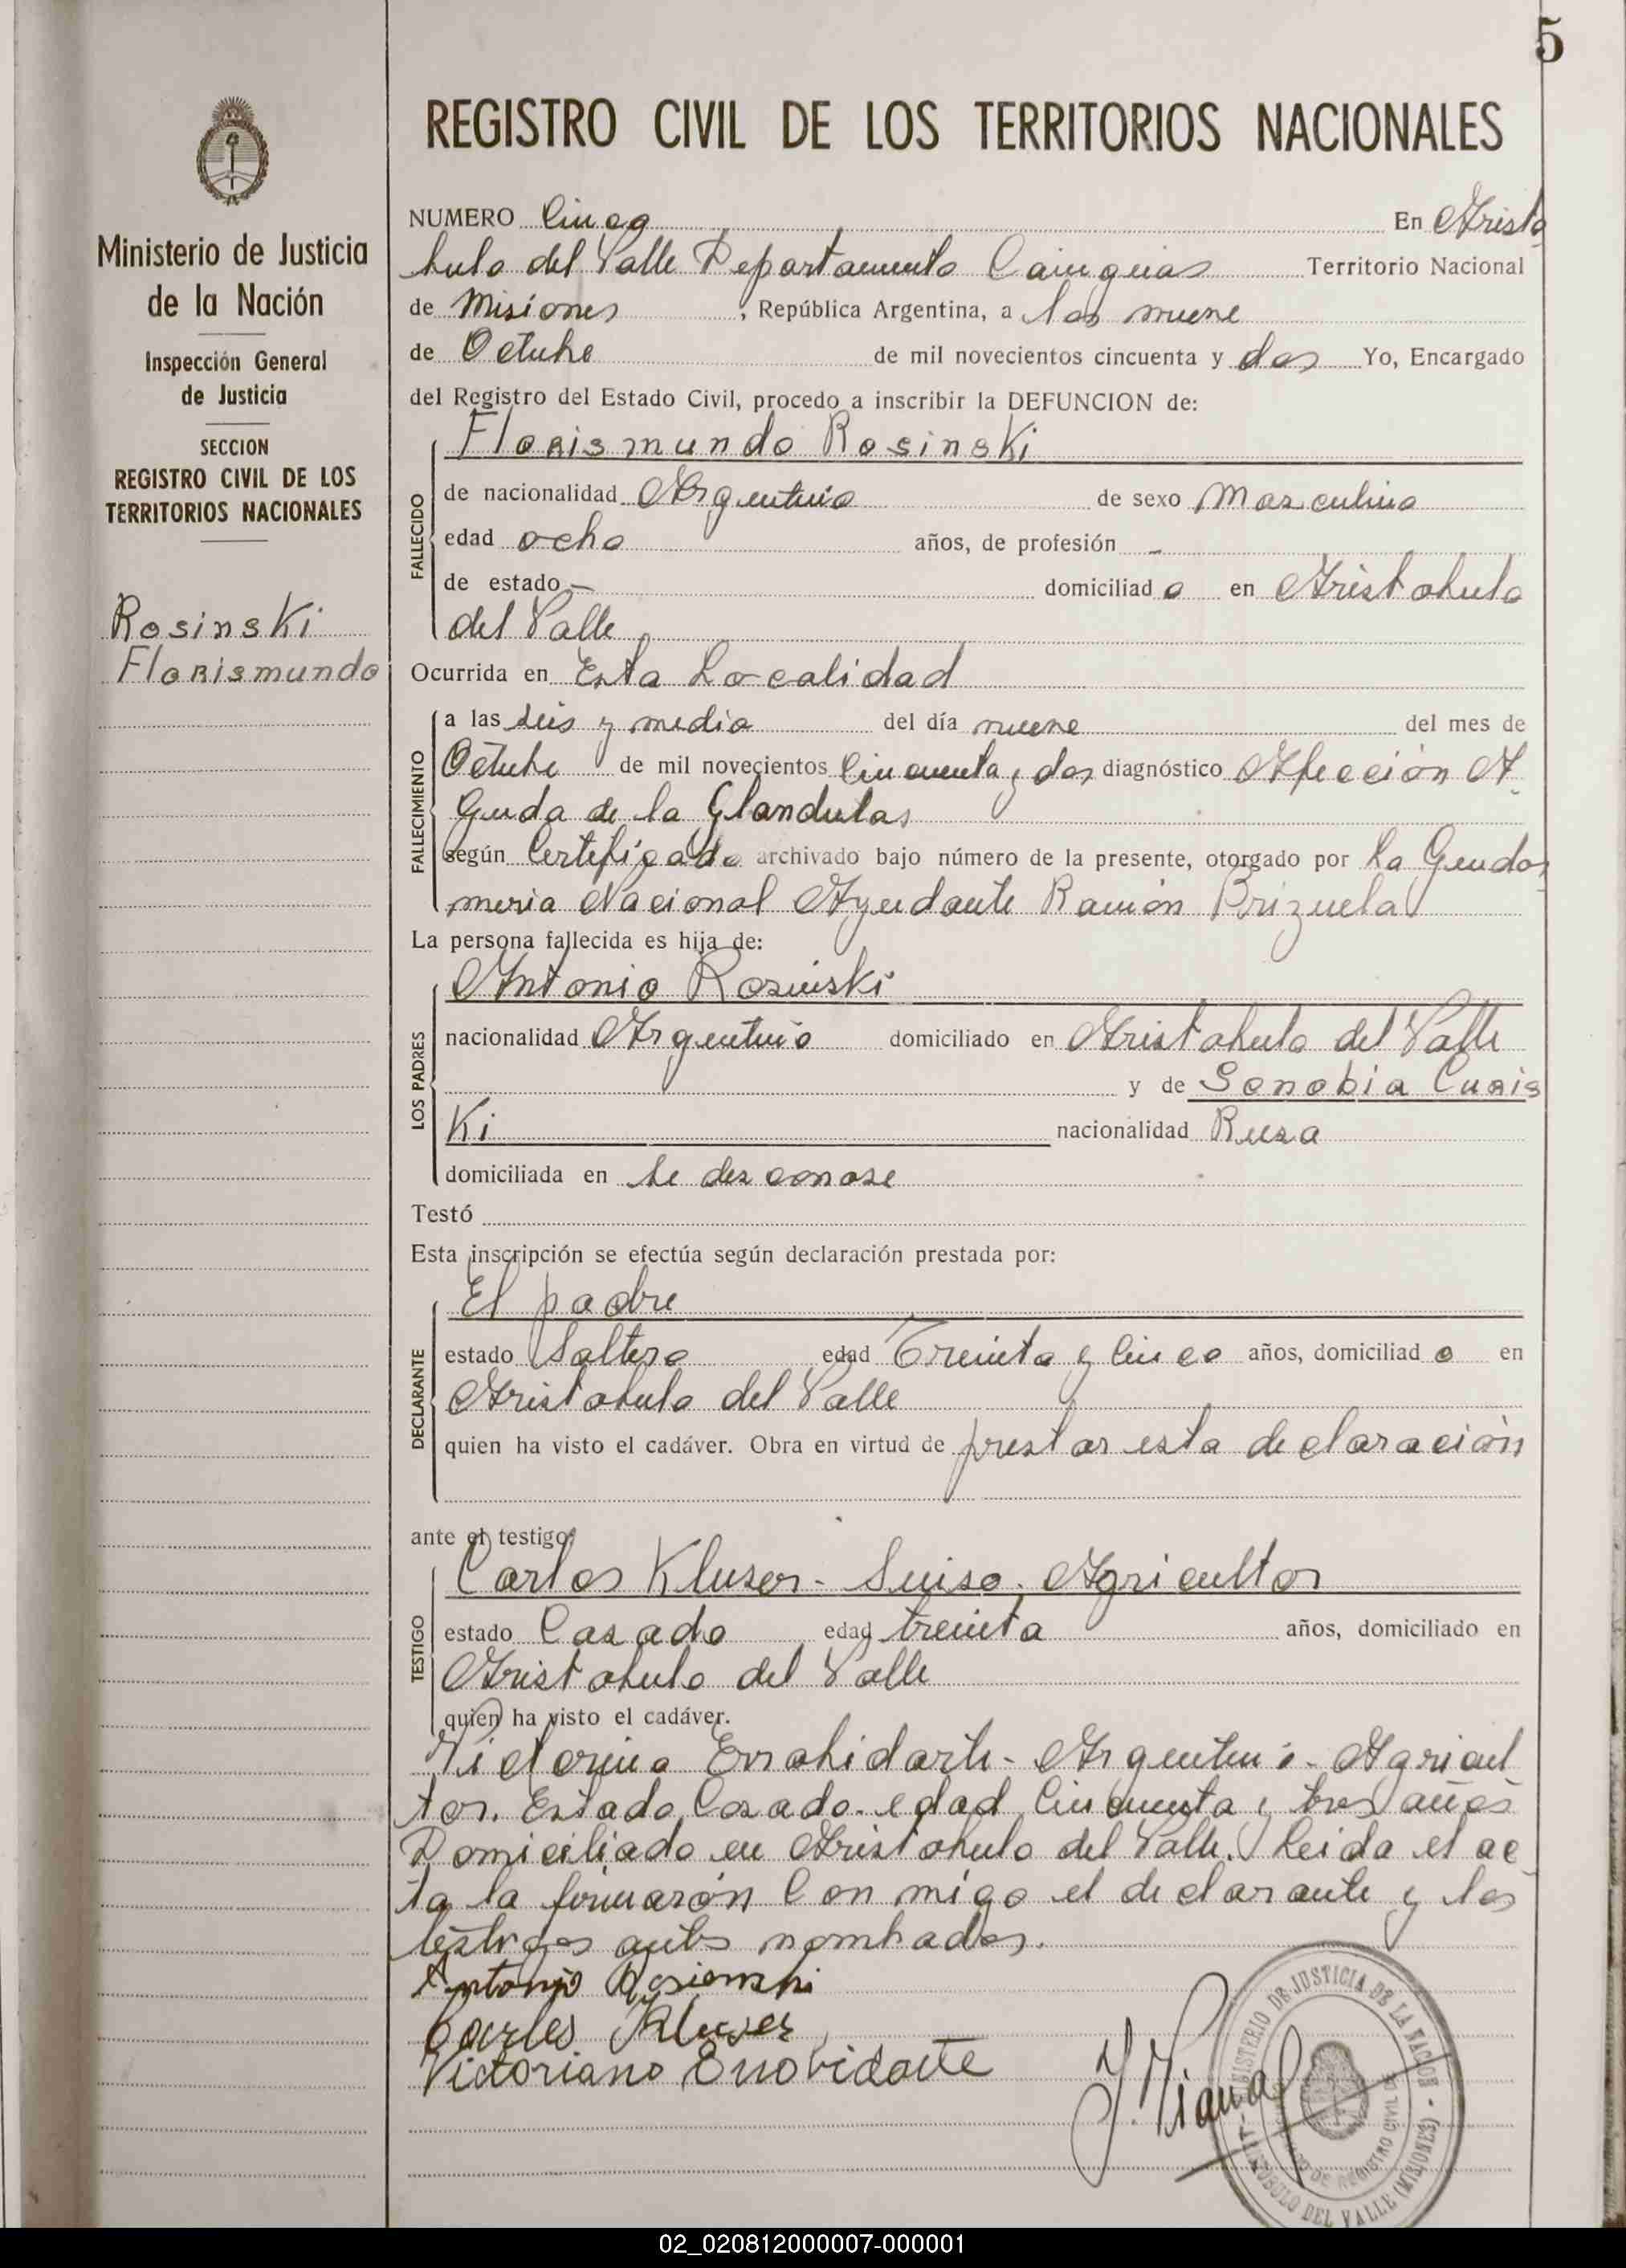 5
REGISTRO CIVIL DE LOS TERRITORIOS NACIONALES
Ministerio de Justicia
de la Nación
Inspección General
de Justicia
SECCION
REGISTRO CIVIL DE LOS
TERRITORIOS NACIONALES
Rosinski
Florismundo
NUMERO Cinco En Aristo
bulo del Valle Departamento Cainguas Territorio Nacional
de Misiones, República Argentina, a los nueve
de Octubre de mil novecientos cincuenta y dos Yo, Encargado
del Registro del Estado Civil, procedo a inscribir la DEFUNCION de:
Florismundo Rosinski
FALLECIDO
de nacionalidad Argentino de sexo Masculino
edad ocho años, de profesión -
de estado - domiciliado en Aristobulo
del Valle
Ocurrida en Esta Localidad
FALLECIMIENTO
a las seis y media del día nueve del mes de
Octubre de mil novecientos Cincuenta y dos diagnóstico Afección A
guda de la Glandulas
según Certificado archivado bajo número de la presente, otorgado por La Gendar
meria Nacional Ayudante Ramón Brizuela
La persona fallecida es hija de:
LOS PADRES
Antonio Rosinski
nacionalidad Argentino domiciliado en Aristobulo del Valle
y de Senobia Curis
Ki nacionalidad Rusa
domiciliada en se desconose
Testó
Esta inscripción se efectúa según declaración prestada por:
DECLARANTE
El padre
estado Soltero edad Treinta y Cinco años, domiciliado en
Aristobulo del Valle
quien ha visto el cadáver. Obra en virtud de prestar esta declaración
ante el testigo:
TESTIGO
Carlos Kluser - Suiso. Agricultor
estado Casado edad treinta años, domiciliado en
Aristobulo del Valle
quien ha visto el cadáver.
Victorino Errobidarte - Argentino - Agricul
tor. Estado Casado. edad Cincuenta y tres años
Domiciliado en Aristobulo del Valle. Leida el ac
ta la firmarón Con migo el declarante y los
testigos antes nombrados.
Antonio Rosienski
Carlos Kluser
Victoriano Errobidarte
J. Viana
MINISTERIO DE JUSTICIA DE LA NACION
REGISTRO CIVIL DE
ARISTOBULO DEL VALLE (MISIONES)
02_020812000007-000001